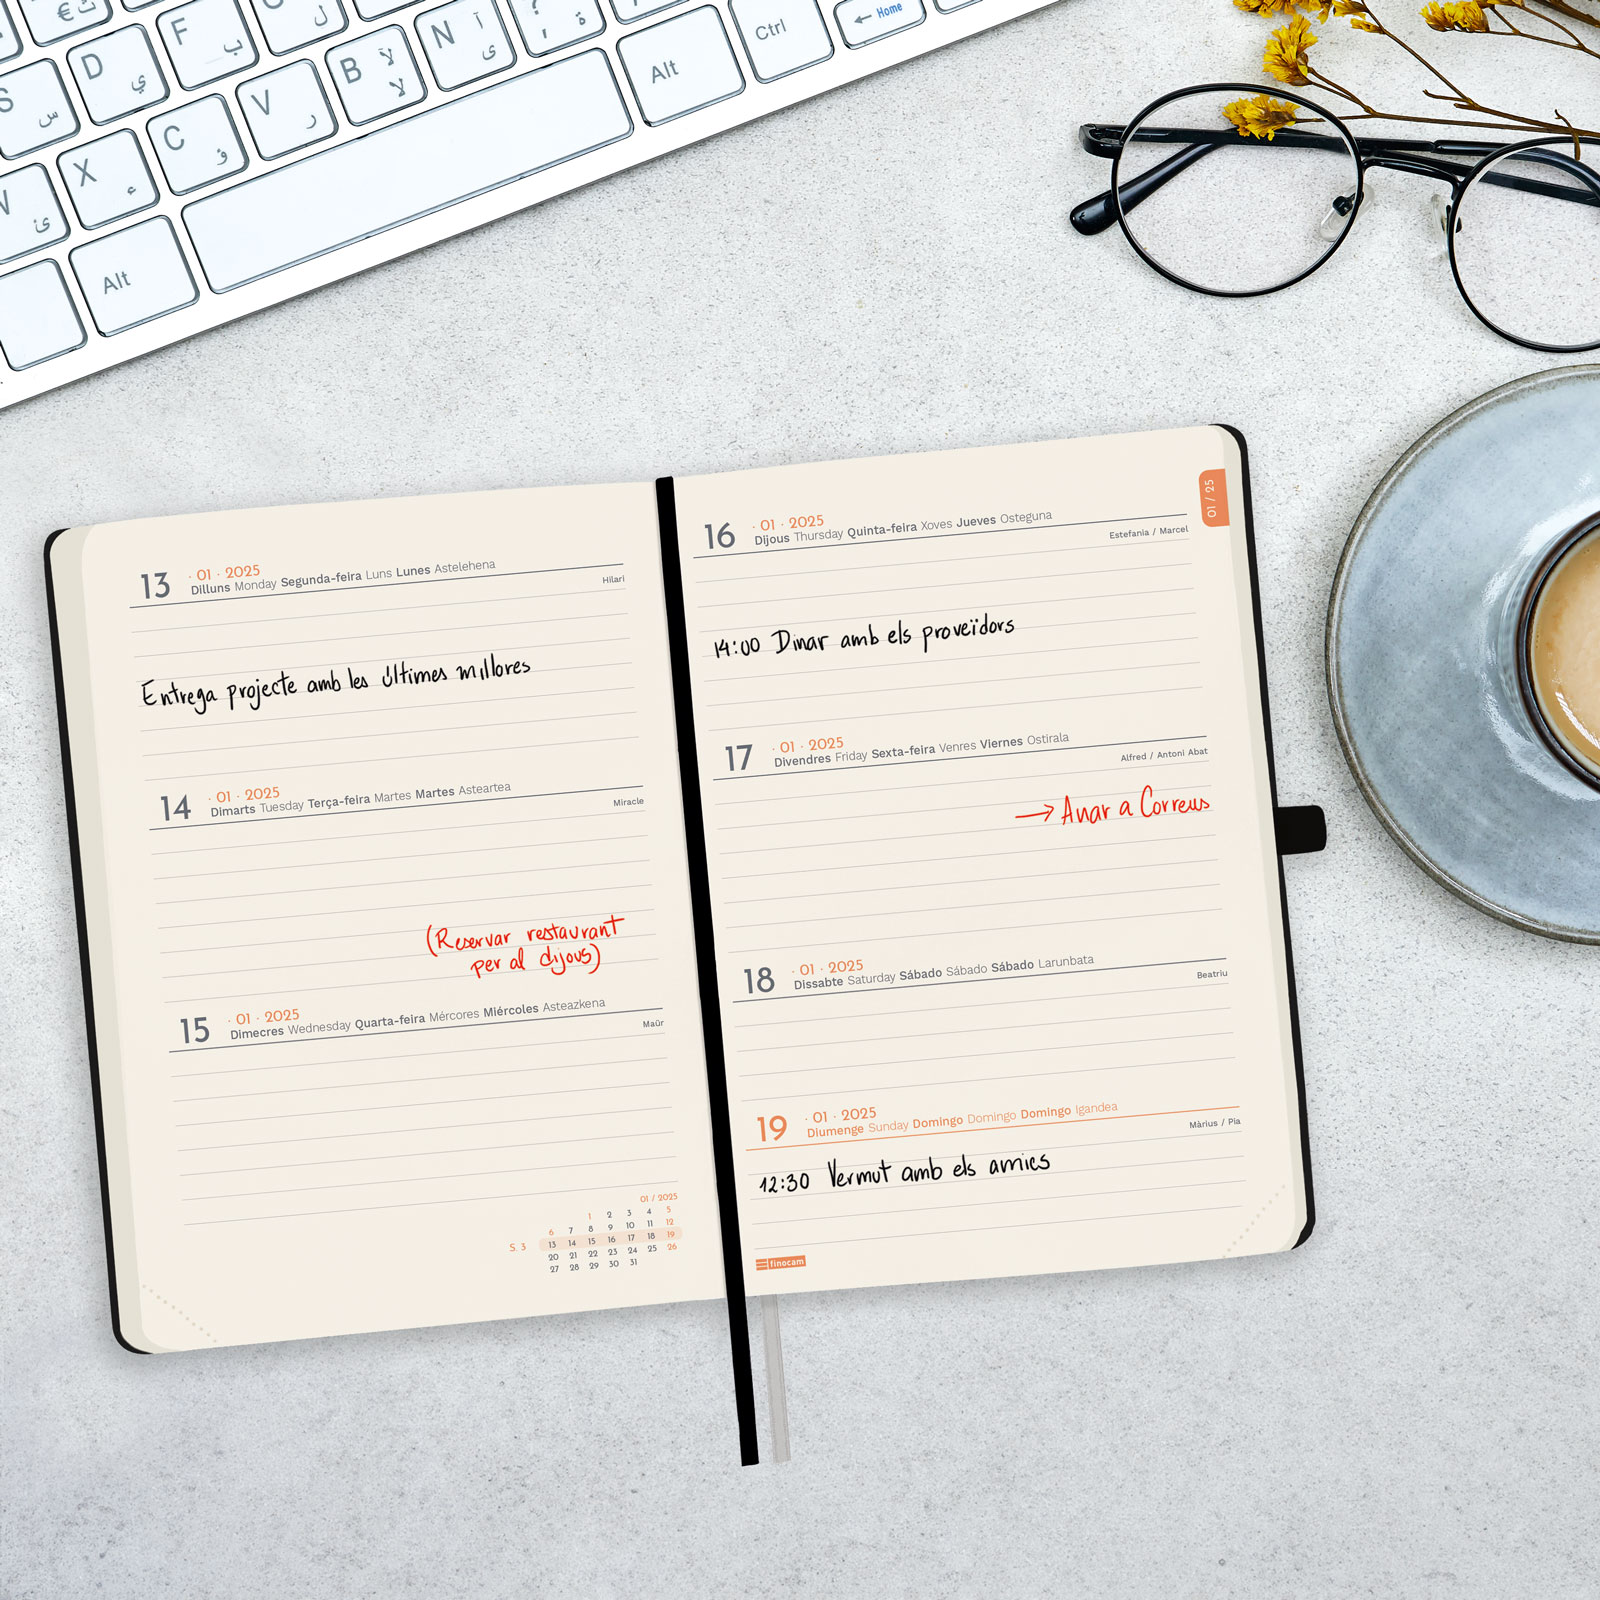 € ث
D ي
F ب
ل
N آ ى
؟ ة
Ctrl
← Home
S س
B لآ لا
Alt
C ؤ
V ر
X ء
ئ
Alt
13 · 01 · 2025
Dilluns Monday Segunda-feira Luns Lunes Astelehena
Hilari
Entrega projecte amb les últimes millores
14 · 01 · 2025
Dimarts Tuesday Terça-feira Martes Martes Asteartea
Miracle
(Reservar restaurant
per al dijous)
15 · 01 · 2025
Dimecres Wednesday Quarta-feira Mércores Miércoles Asteazkena
Maür
01 / 2025
1 2 3 4 5
6 7 8 9 10 11 12
S. 3 13 14 15 16 17 18 19
20 21 22 23 24 25 26
27 28 29 30 31
01 / 25
16 · 01 · 2025
Dijous Thursday Quinta-feira Xoves Jueves Osteguna
Estefania / Marcel
14:00 Dinar amb els proveïdors
17 · 01 · 2025
Divendres Friday Sexta-feira Venres Viernes Ostirala
Alfred / Antoni Abat
→ Anar a Correus
18 · 01 · 2025
Dissabte Saturday Sábado Sábado Sábado Larunbata
Beatriu
19 · 01 · 2025
Diumenge Sunday Domingo Domingo Domingo Igandea
Màrius / Pia
12:30 Vermut amb els amics
finocam